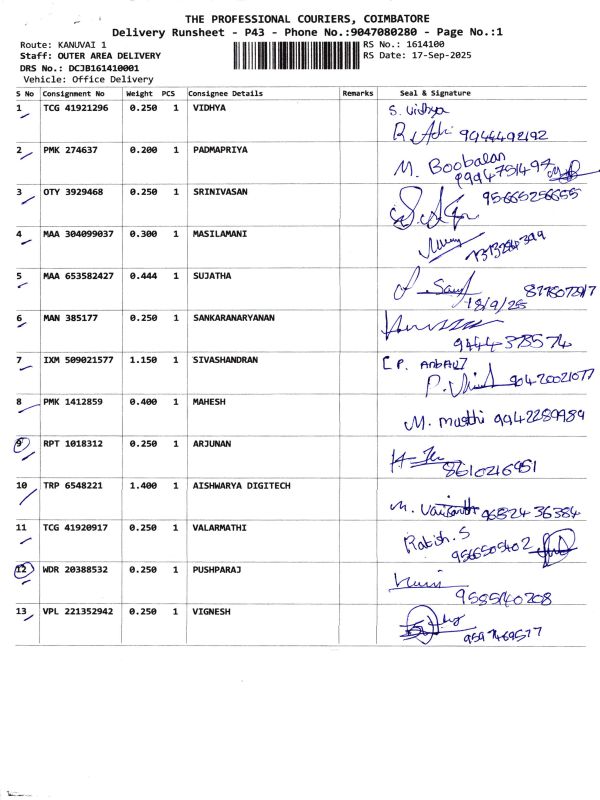 THE PROFESSIONAL COURIERS, COIMBATORE
Delivery Runsheet - P43 - Phone No.:9047080280 - Page No.:1
Route: KANUVAI 1 RS No.: 1614100
Staff: OUTER AREA DELIVERY RS Date: 17-Sep-2025
DRS No.: DCJB161410001
Vehicle: Office Delivery
S No Consignment No Weight PCS Consignee Details Remarks Seal & Signature
1 TCG 41921296 0.250 1 VIDHYA S. Vidhya
9444492192
2 PMK 274637 0.200 1 PADMAPRIYA M. Boobalan
9994751497
3 OTY 3929468 0.250 1 SRINIVASAN 95665256655
4 MAA 304099037 0.300 1 MASILAMANI
5 MAA 653582427 0.444 1 SUJATHA
18/9/25
6 MAN 385177 0.250 1 SANKARANARYANAN
9444378574
7 IXM 509021577 1.150 1 SIVASHANDRAN
90420021077
8 PMK 1412859 0.400 1 MAHESH M. masthi 9942289989
9 RPT 1018312 0.250 1 ARJUNAN
8610216951
10 TRP 6548221 1.400 1 AISHWARYA DIGITECH
M. 9682436384
11 TCG 41920917 0.250 1 VALARMATHI Ratish.S
9566505402
12 WDR 20388532 0.250 1 PUSHPARAJ
9585140208
13 VPL 221352942 0.250 1 VIGNESH
9597469577